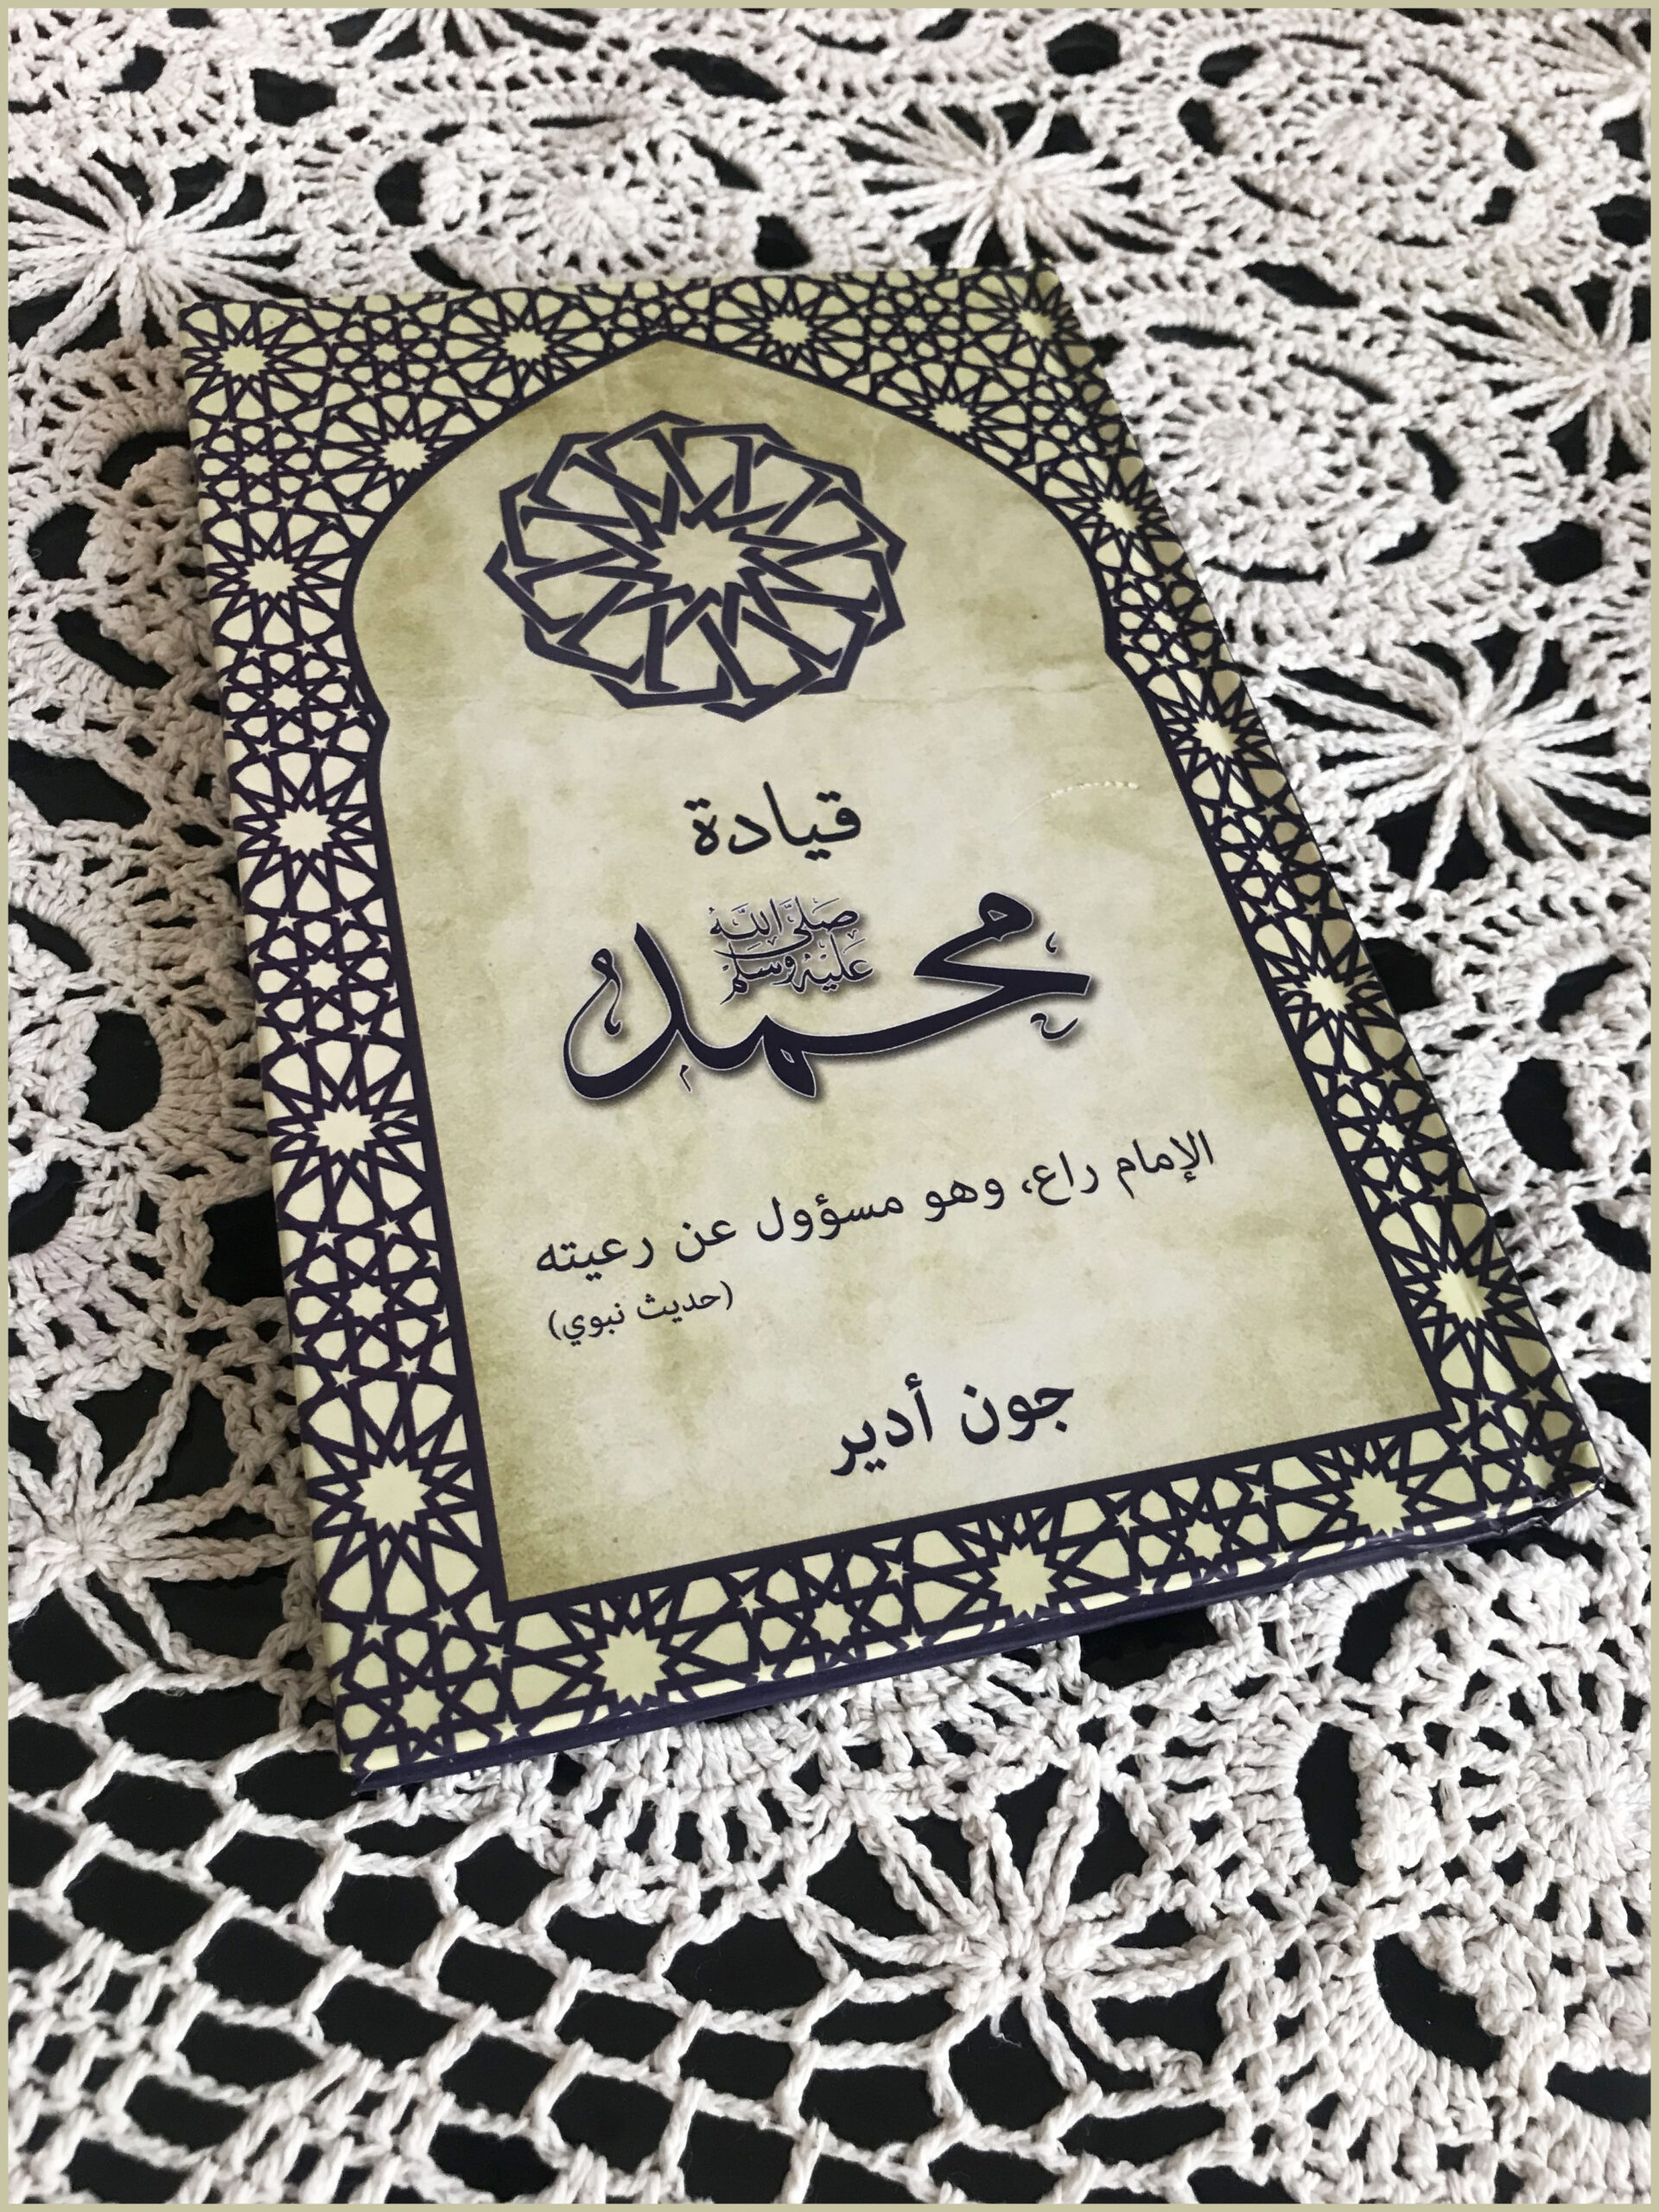 قيادة
محمد
صَلَّى اللَّهُ
عَلَيْهِ وَسَلَّمَ
الإمام راع، وهو مسؤول عن رعيته
(حديث نبوي)
جون أدير